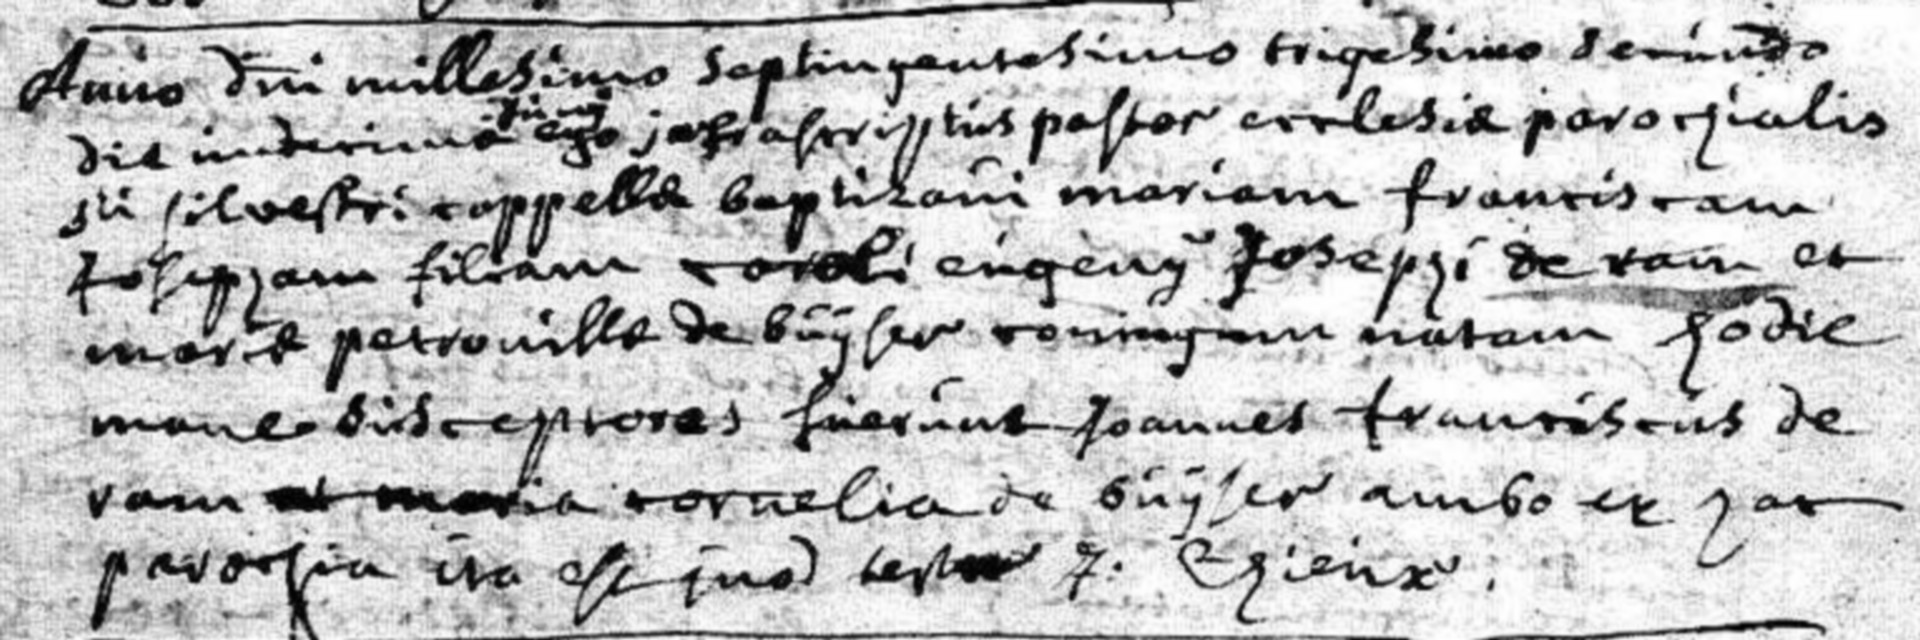 Anno dni millesimo septingentesimo trigesimo secundo
die undecima Junij ego infrascriptus pastor ecclesiæ parochialis
sti silvestri cappellæ baptizavi mariam franciscam
Josepham filiam caroli eugenij Josephi de ram et
mariæ petronillæ de büÿser coniugum natam hodie
mane susceptores fuerunt Joannes franciscus de
ram et maria cornelia de büÿser ambo ex hac
parochia ita est quod testor J.